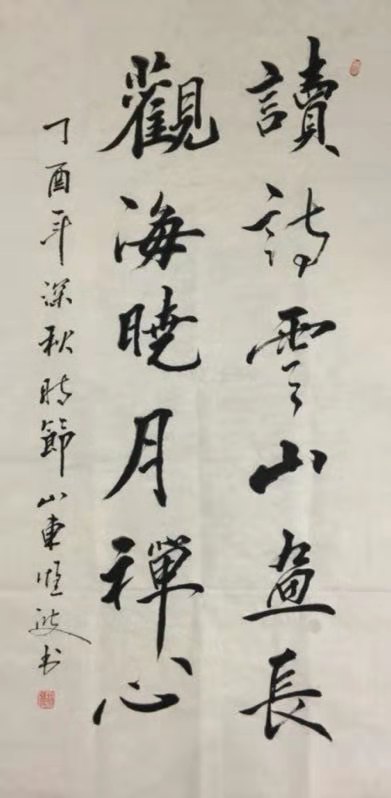 讀詩雲山畫長
觀海曉月禪心
丁酉年深秋時節山東 書